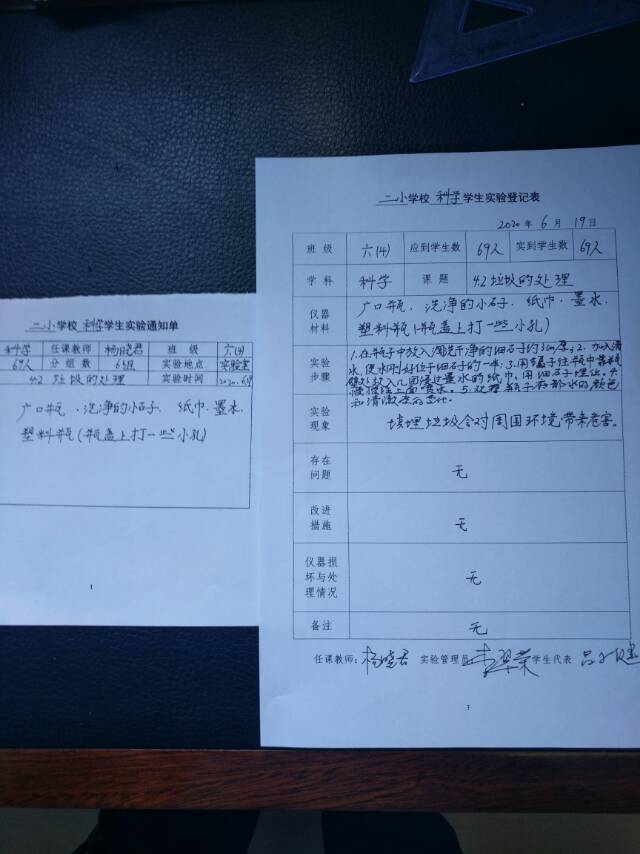 二小学校 科学学生实验通知单
科学 任课教师 杨晓君 班 级 六(4)
69人 分 组 数 6组 实验地点 实验室
4.2 垃圾的处理 实验时间 2020.6.19
广口瓶、洗净的小石子、纸巾、墨水、
塑料瓶(瓶盖上打一些小孔)
1
二小学校 科学学生实验登记表
2020 年 6 月 19 日
班 级 六(4) 应到学生数 69人 实到学生数 69人
学 科 科学 课 题 4.2 垃圾的处理
仪器材料
广口瓶、洗净的小石子、纸巾、墨水、
塑料瓶(瓶盖上打一些小孔)
实验步骤
1.在瓶子中放入淘洗干净的细石子约3cm厚;2.加入清
水,使水刚好位于细石子的一半;3.用镊子往瓶中靠瓶
壁处放入几团浸过墨水的纸巾,用细石子埋住。4.
5.观察瓶子底部水的颜色
和清澈度的变化。
实验现象
填埋垃圾会对周围环境带来危害。
存在问题 无
改进措施 无
仪器损坏与处理情况 无
备注 无
任课教师:杨晓君 实验管理员 学生代表
3